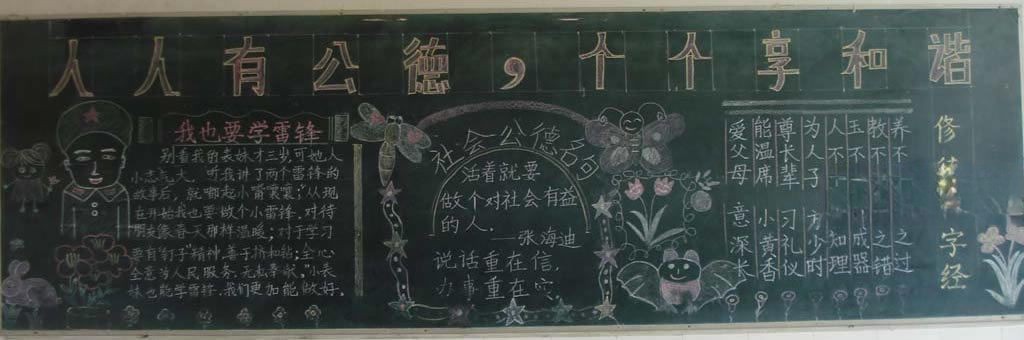 人人有公德，个个享和谐
我也要学雷锋
别看我的表妹才三岁，可她人
小志气大。听我讲了两个雷锋的
故事后，就唱起小雷襄襄：“从现
在开始我也要做个小雷锋，对待
朋友像春天那样温暖；对于学习
要有钉子“精神，善于挤和钻；全心
全意为人民服务，无私奉献。”小表
妹也能学雷锋，我们更加能做好。
社会公德名句
活着就要
做个对社会有益
的人。
——张海迪
说话重在信，
办事重在实。
修 字经
养不 之过
教不 之错
玉不 成器
人不 知理
为人子 方少时
尊长辈 习礼仪
能温席 小黄香
爱父母 意深长